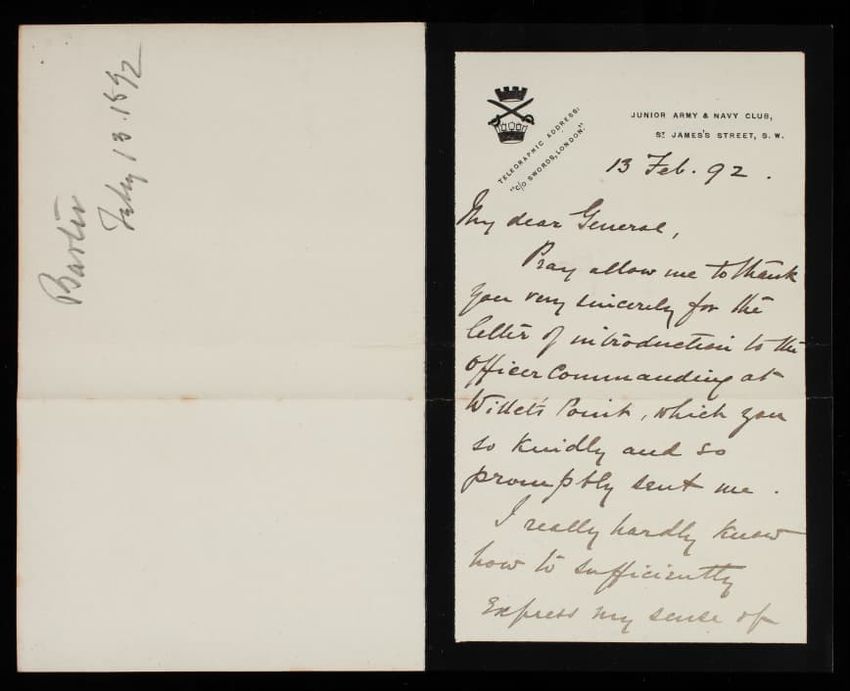 Feby 13. 1892
TELEGRAPHIC ADDRESS:
"c/o SWORDS, LONDON."
JUNIOR ARMY & NAVY CLUB,
ST JAMES'S STREET, S.W.
13 Feb. 92.
My dear General,
Pray allow me to thank
you very sincerely for the
letter of introduction to the
Officer Commanding at
Willets Point, which you
so kindly and so
promptly sent me.
I really hardly know
how to sufficiently
Express my sense of